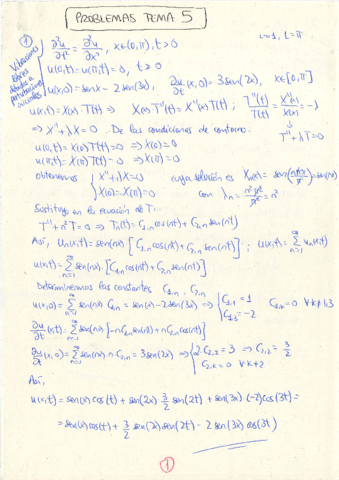 PROBLEMAS TEMA 5
① Vibraciones libres debidas a perturbaciones iniciales
∂²u/∂t² = ∂²u/∂x², x∈(0,π), t>0 c=1, L=π
u(0,t)=u(π,t)=0, t>0
u(x,0)=senx-2sen(3x), ∂u/∂t(x,0)=3sen(2x), x∈[0,π]
u(x,t)=X(x)·T(t) ⇒ X(x)T''(t)=X''(x)T(t); T''(t)/T(t)=X''(x)/X(x)=-λ
⇒ X''+λX=0. De las condiciones de contorno: T''+λT=0
u(0,t)=X(0)T(t)=0 ⇒ X(0)=0
u(π,t)=X(π)T(t)=0 ⇒ X(π)=0
obtenemos { X''+λX=0 X(0)=X(π)=0 cuya solución es Xn(x)=sen(nπx/π)=sen(nx)
con λn=n²π²/π²=n²
Sustituyo en la ecuación de T...
T''+n²T=0 ⇒ Tn(t)=C1,n cos(nt)+C2,n sen(nt)
Así, un(x,t)=sen(nx)[C1,n cos(nt)+C2,n sen(nt)]; u(x,t)=∑n=1^∞ un(x,t)
u(x,t)=∑n=1^∞ sen(nx)[C1,n cos(nt)+C2,n sen(nt)]
Determinemos las constantes C1,n, C2,n
u(x,0)=∑n=1^∞ sen(nx) C1,n=sen(x)-2sen(3x) ⇒ { C1,1=1 C1,3=-2 C1,k=0 ∀k≠1,3
∂u/∂t(x,t)=∑n=1^∞ sen(nx)[-nC1,n sen(nt)+nC2,n cos(nt)]
∂u/∂t(x,0)=∑n=1^∞ sen(nx) n C2,n=3sen(2x) ⇒ { 2C2,2=3 ⇒ C2,2=3/2 C2,k=0 ∀k≠2
Así,
u(x,t)=sen(x)cos(t)+sen(2x) 3/2 sen(2t)+sen(3x)(-2)cos(3t)=
=sen(x)cos(t)+3/2 sen(2x)sen(2t)-2sen(3x)cos(3t)
①